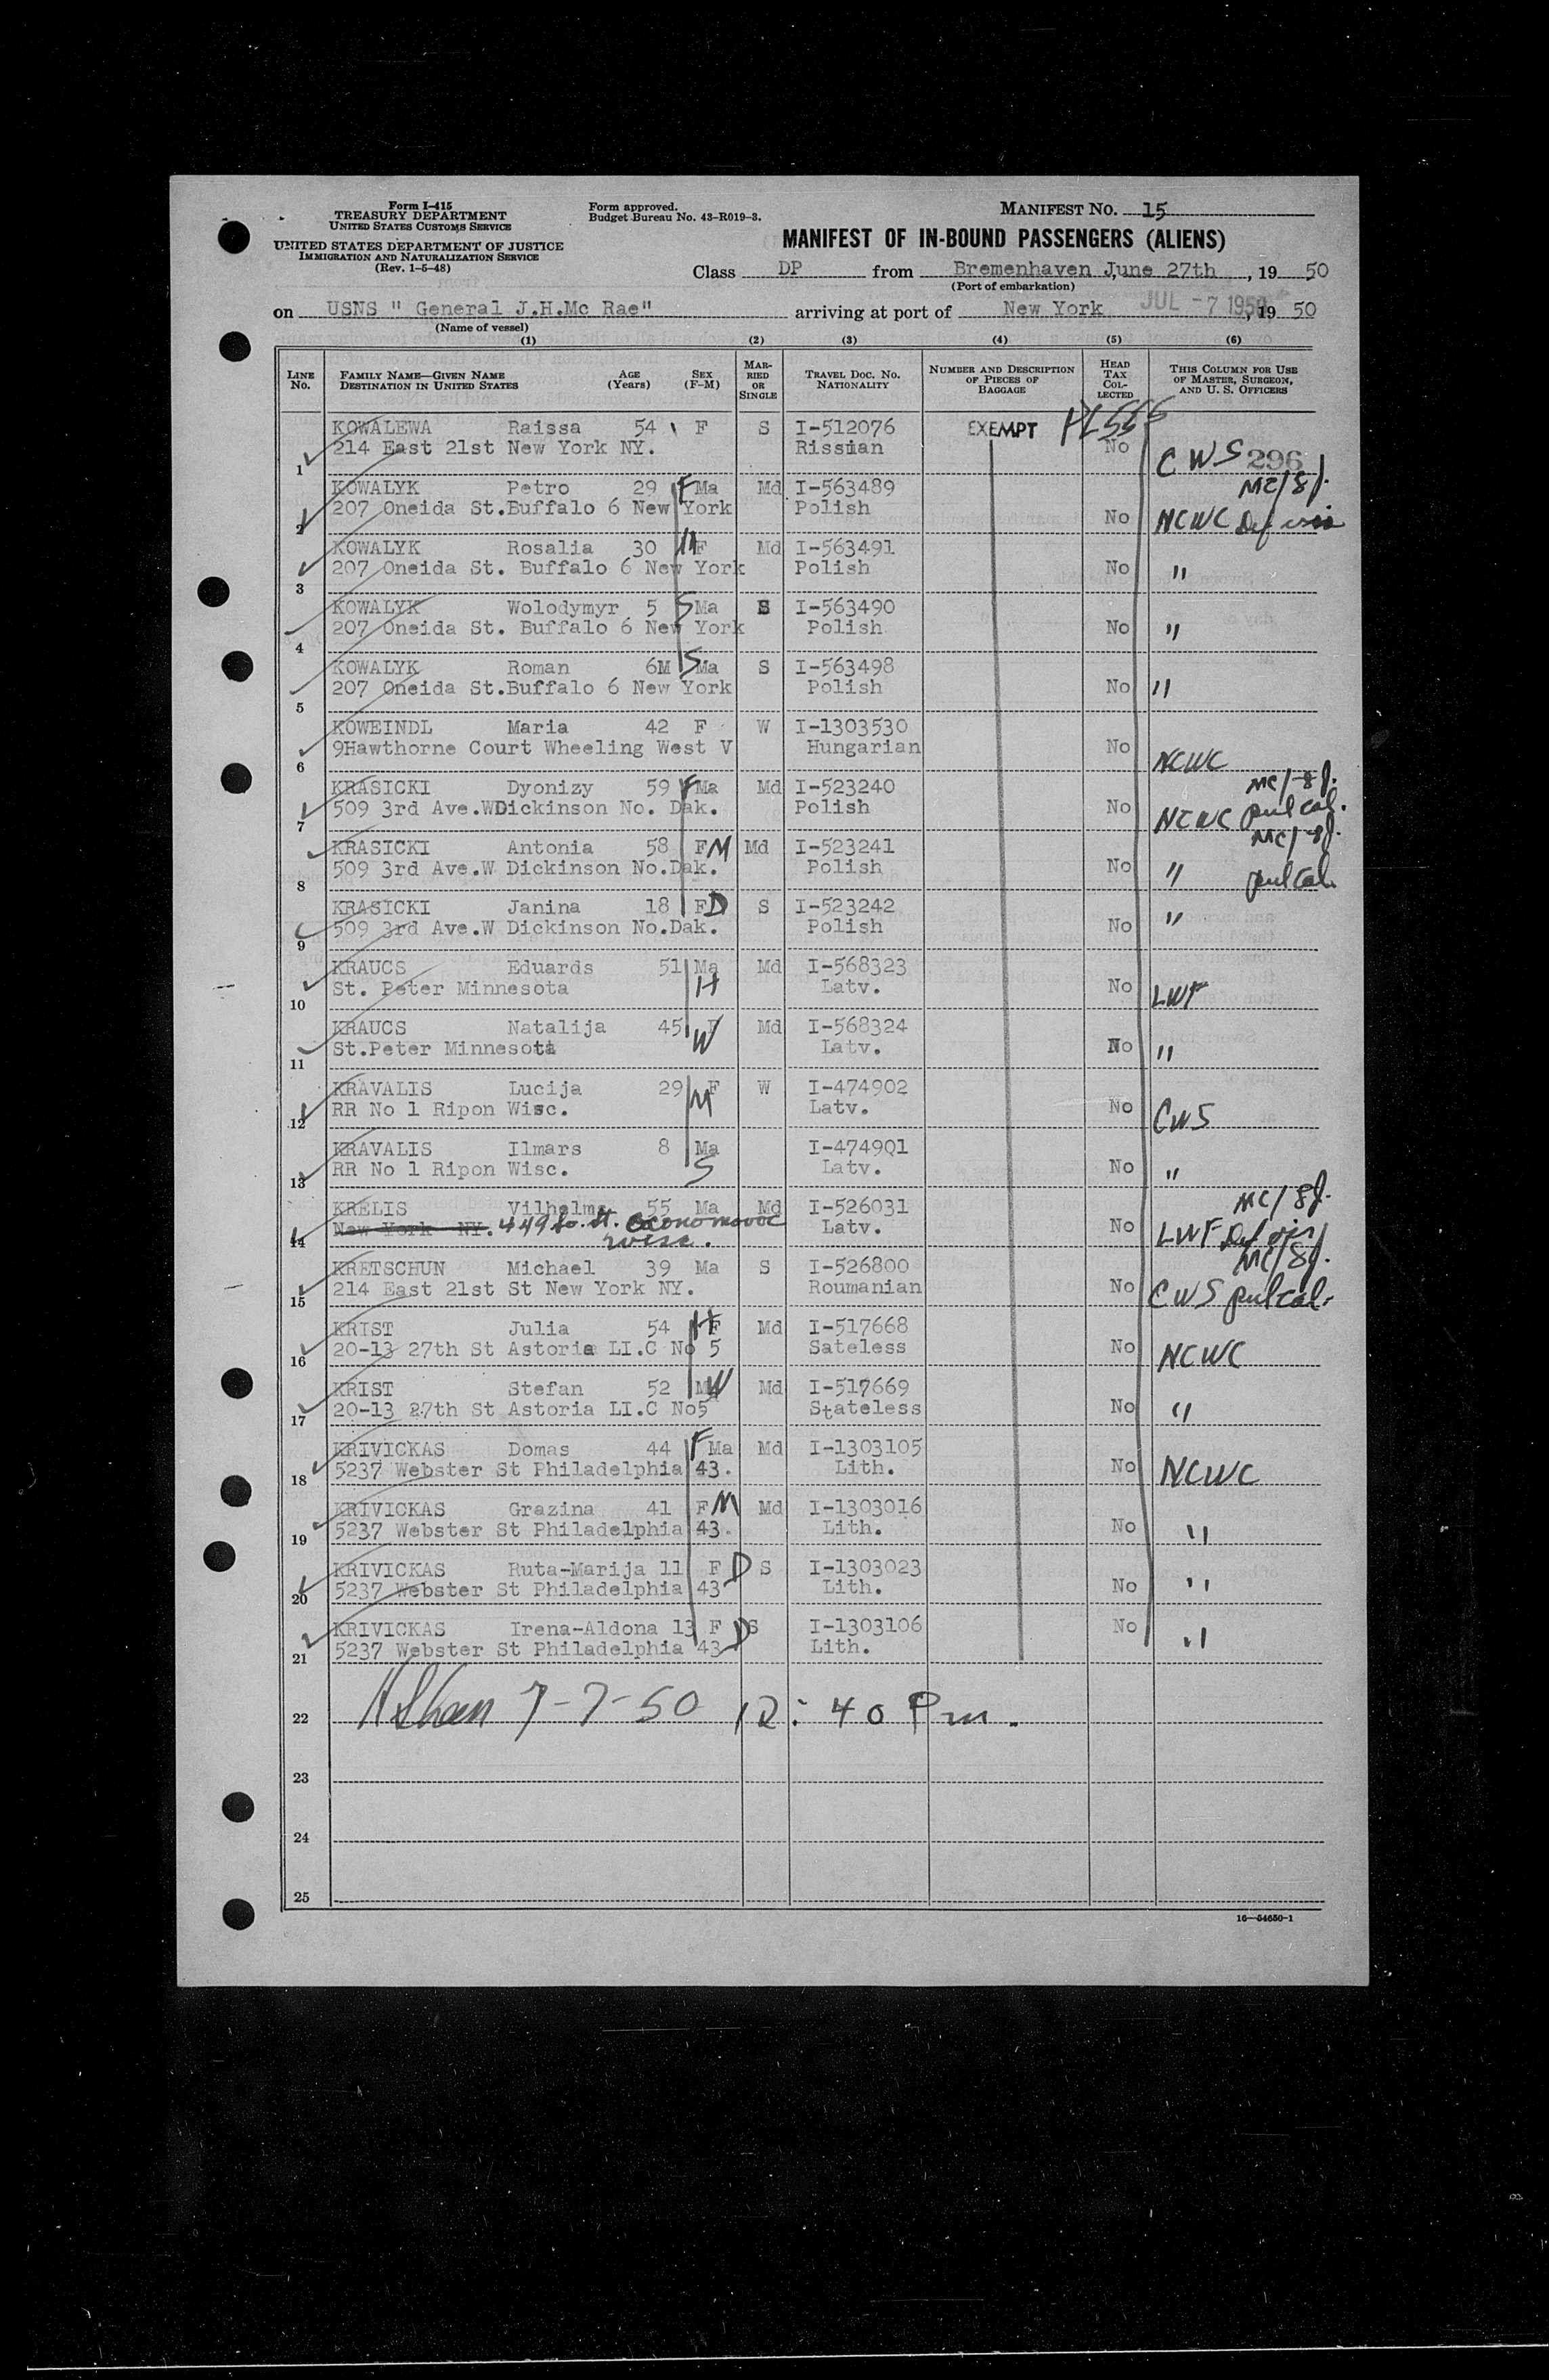 Form I-415
TREASURY DEPARTMENT
UNITED STATES CUSTOMS SERVICE
UNITED STATES DEPARTMENT OF JUSTICE
IMMIGRATION AND NATURALIZATION SERVICE
(Rev. 1-5-48)
Form approved.
Budget Bureau No. 43-R019-3.
MANIFEST NO. 15
MANIFEST OF IN-BOUND PASSENGERS (ALIENS)
Class DP from Bremenhaven June 27th, 19 50
(Port of embarkation)
on USNS " General J.H.Mc Rae" arriving at port of New York JUL -7 1950, 19 50
(Name of vessel)
(1) (2) (3) (4) (5) (6)
LINE No. FAMILY NAME—GIVEN NAME DESTINATION IN UNITED STATES AGE (Years) SEX (F-M) MARRIED OR SINGLE TRAVEL DOC. NO. NATIONALITY NUMBER AND DESCRIPTION OF PIECES OF BAGGAGE HEAD TAX COLLECTED THIS COLUMN FOR USE OF MASTER, SURGEON, AND U. S. OFFICERS
KOWALEWA Raissa 54 F S I-512076 EXEMPT PL555
1 214 East 21st New York NY. Rissian No CWS 296
KOWALYK Petro 29 F Ma Md I-563489 MC/8f.
2 207 Oneida St.Buffalo 6 New York Polish No NCWC Def vis
KOWALYK Rosalia 30 M F Md I-563491
3 207 Oneida St. Buffalo 6 New York Polish No "
KOWALYK Wolodymyr 5 S Ma S I-563490
4 207 Oneida St. Buffalo 6 New York Polish No "
KOWALYK Roman 6M S Ma S I-563498
5 207 Oneida St.Buffalo 6 New York Polish No "
KOWEINDL Maria 42 F W I-1303530
6 9Hawthorne Court Wheeling West V Hungarian No NCWC
KRASICKI Dyonizy 59 F Ma Md I-523240 MC/8f.
7 509 3rd Ave.WDickinson No. Dak. Polish No NCWC pulcal.
KRASICKI Antonia 58 F M Md I-523241 MC/8f.
8 509 3rd Ave.W Dickinson No.Dak. Polish No " pulcal.
KRASICKI Janina 18 F D S I-523242
9 509 3rd Ave.W Dickinson No.Dak. Polish No "
KRAUCS Eduards 51 Ma Md I-568323
10 St. Peter Minnesota H Latv. No LWF
KRAUCS Natalija 45 F Md I-568324
11 St.Peter Minnesota W Latv. No "
KRAVALIS Lucija 29 F W I-474902
12 RR No 1 Ripon Wisc. M Latv. No CWS
KRAVALIS Ilmars 8 Ma I-474901
13 RR No 1 Ripon Wisc. S Latv. No "
KRELIS Vilhelms 55 Ma Md I-526031 MC/8f.
14 New York NY. 449 So. St. Oconomowoc Wisc. Latv. No LWF Def vis
KRETSCHUN Michael 39 Ma S I-526800 MC/8f.
15 214 East 21st St New York NY. Roumanian No CWS pulcal.
KRIST Julia 54 H F Md I-517668
16 20-13 27th St Astoria LI.C No 5 Sateless No NCWC
KRIST Stefan 52 Ma W Md I-517669
17 20-13 27th St Astoria LI.C No5 Stateless No "
KRIVICKAS Domas 44 F Ma Md I-1303105
18 5237 Webster St Philadelphia 43. Lith. No NCWC
KRIVICKAS Grazina 41 F M Md I-1303016
19 5237 Webster St Philadelphia 43. Lith. No "
KRIVICKAS Ruta-Marija 11 F D S I-1303023
20 5237 Webster St Philadelphia 43 Lith. No "
KRIVICKAS Irena-Aldona 13 F D S I-1303106 No
21 5237 Webster St Philadelphia 43 Lith. "
22 7-7-50 12:40 Pm.
23
24
25
16—54650-1